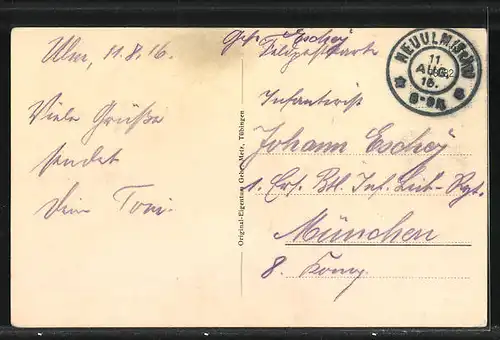 Ulm, 11.8.16.
Viele Grüße
sendet
Dein Toni.
Original-Eigentum Gebr. Metz, Tübingen
Eschej
Feldpostkarte
NEUULM
11
AUG.
16.
Infanterist
Johann Eschej
1. Ers. Btl. Inf. Leib-Rgt.
München
8. Komp.